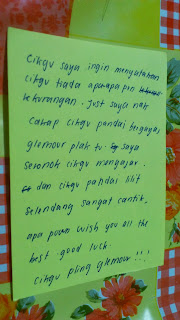 Cikgu saya ingin menyatakan
cikgu tiada apa-apa pin
kekurangan. Just saya nak
cakap cikgu pandai bergagas
glemour plak tu. saya
seronok cikgu mengajar.
dan cikgu pandai lilit
selendang sangat cantik.
apa poun wish you all the
best good luck.
cikgu pling glemour!!!